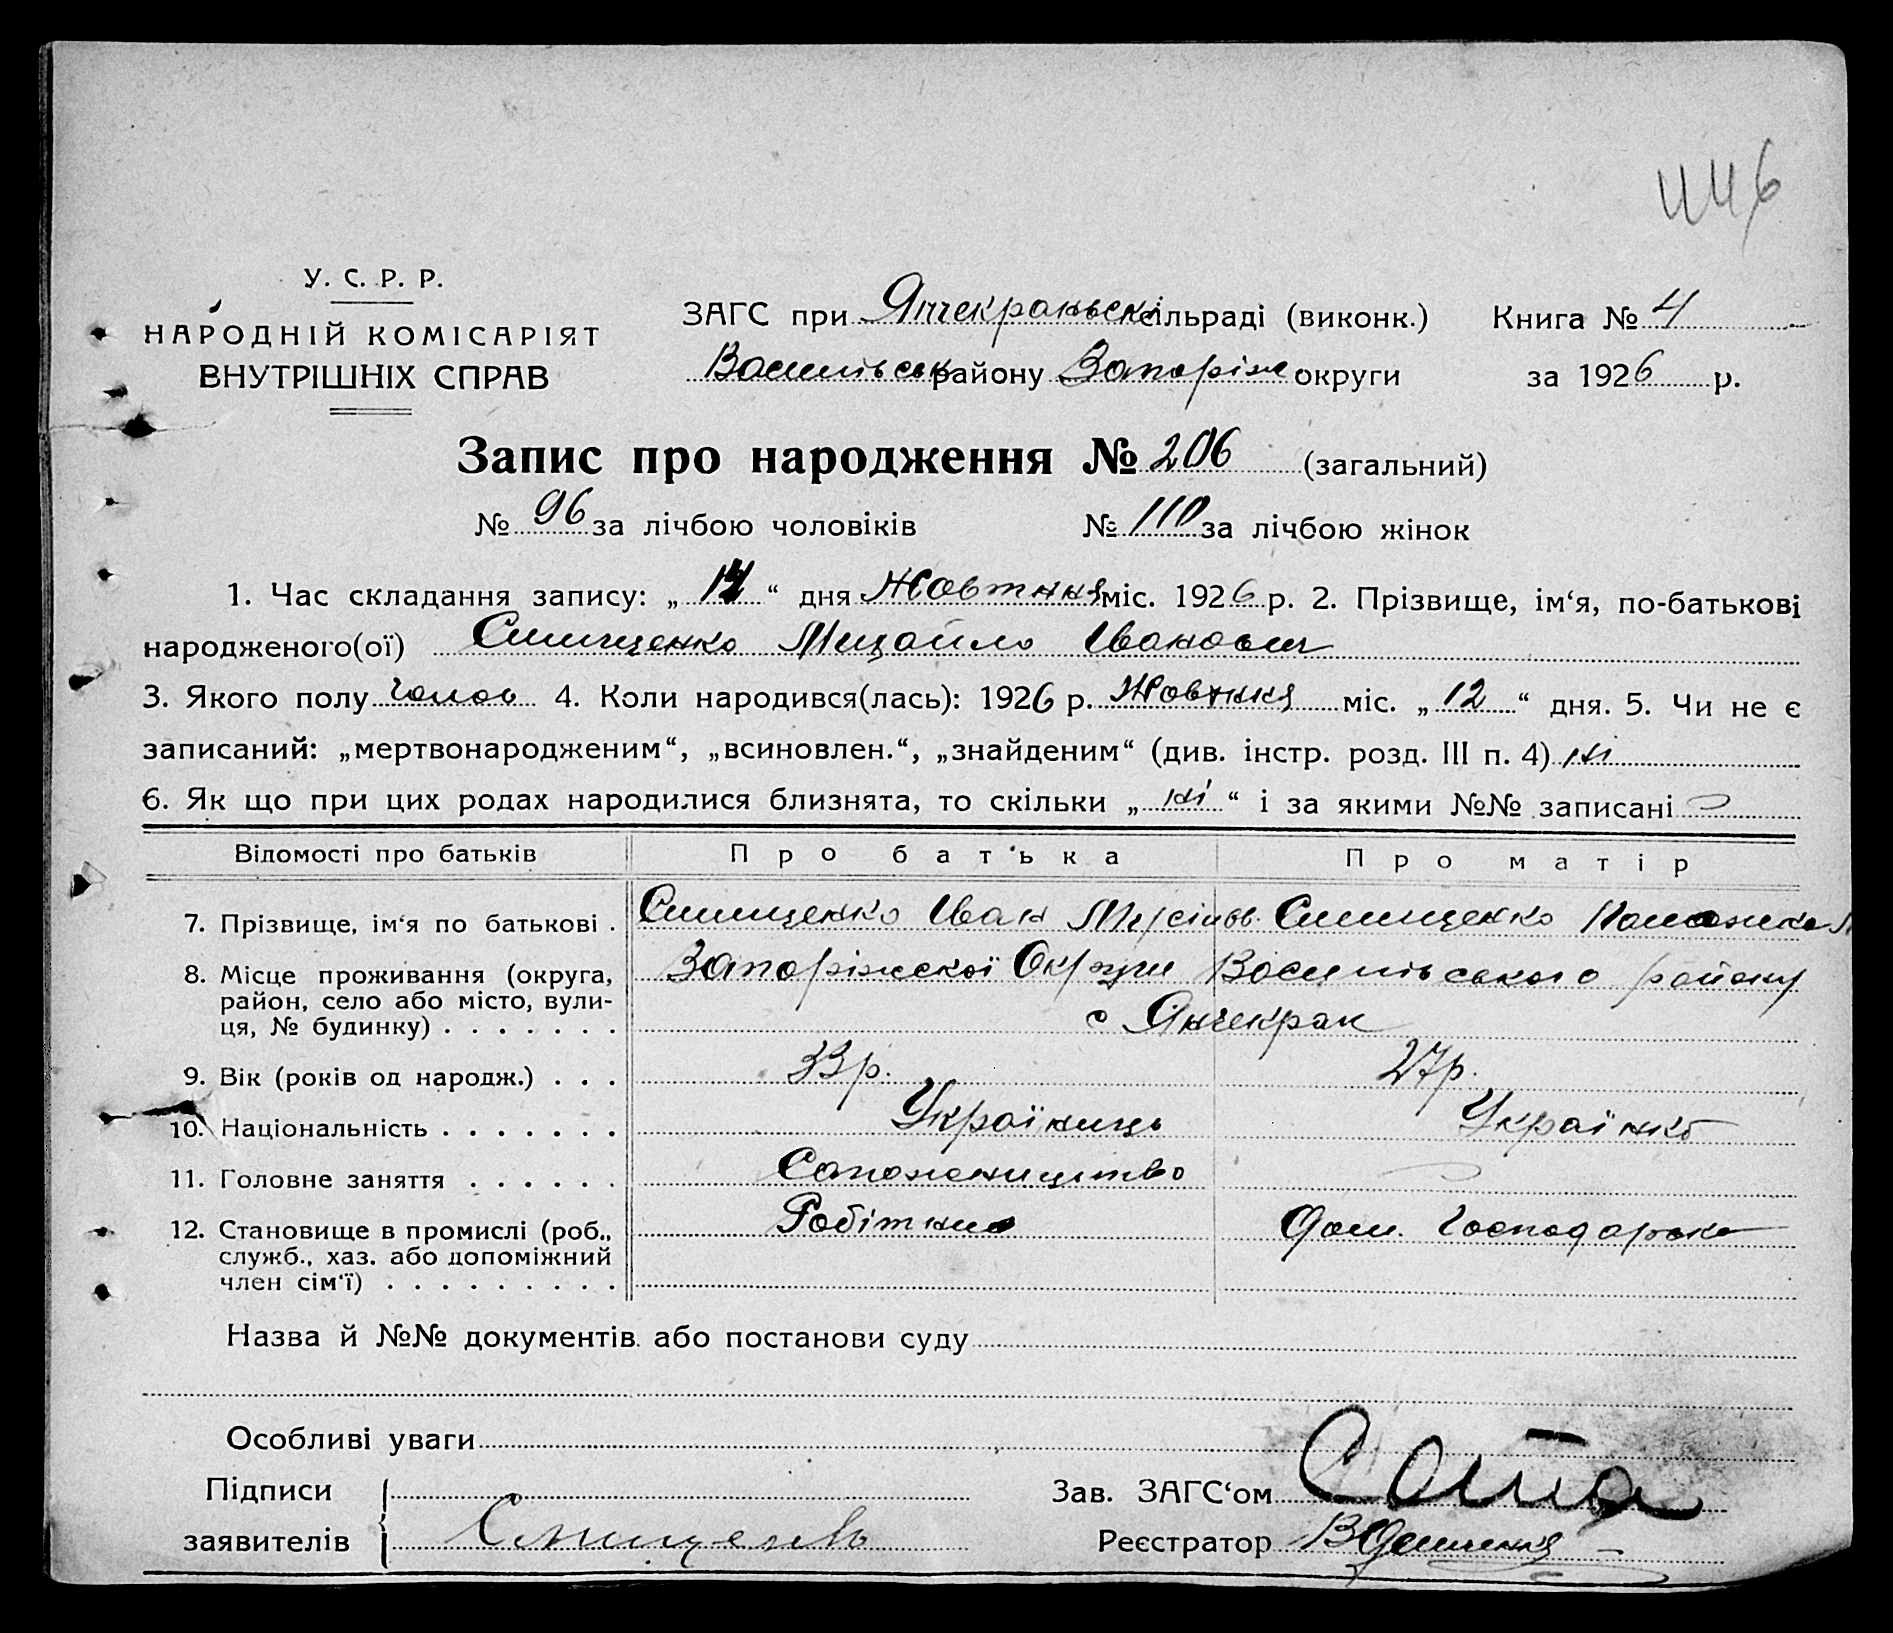 446
У. С. Р. Р.
НАРОДНІЙ КОМІСАРІЯТ
ВНУТРІШНІХ СПРАВ
ЗАГС при Янчекраньскі сільраді (виконк.) Книга № 4
Васи­лівськ району Запоріж округи за 1926 р.
Запис про народження № 206 (загальний)
№ 96 за лічбою чоловіків № 110 за лічбою жінок
1. Час складання запису: „ 14 “ дня Жовтня міс. 1926 р. 2. Прізвище, ім‘я, по-батькові
народженого(ої) Михайло Іванович
3. Якого полу чолов 4. Коли народився(лась): 1926 р. Жовтня міс. „ 12 “ дня. 5. Чи не є
записаний: „мертвонародженим“, „всиновлен.“, „знайденим“ (див. інстр. розд. III п. 4) ні
6. Як що при цих родах народилися близнята, то скільки „ ні “ і за якими №№ записані
Відомості про батьків Про батька Про матір
7. Прізвище, ім‘я по батькові . Іван
8. Місце проживання (округа, Запоріжскої Округи Василівського району
район, село або місто, вули-
ця, № будинку) . . . . . . . с Янчекрак
9. Вік (років од народж.) . . . 33 р. 27 р.
10. Національність . . . . . . . Українець Українка
11. Головне заняття . . . . . .
12. Становище в промислі (роб., Робітник Дом. Господарка
служб., хаз. або допоміжний
член сім‘ї) . . . . . . . . .
Назва й №№ документів або постанови суду
Особливі уваги
Підписи
Зав. ЗАГС‘ом
заявителів
Реєстратор